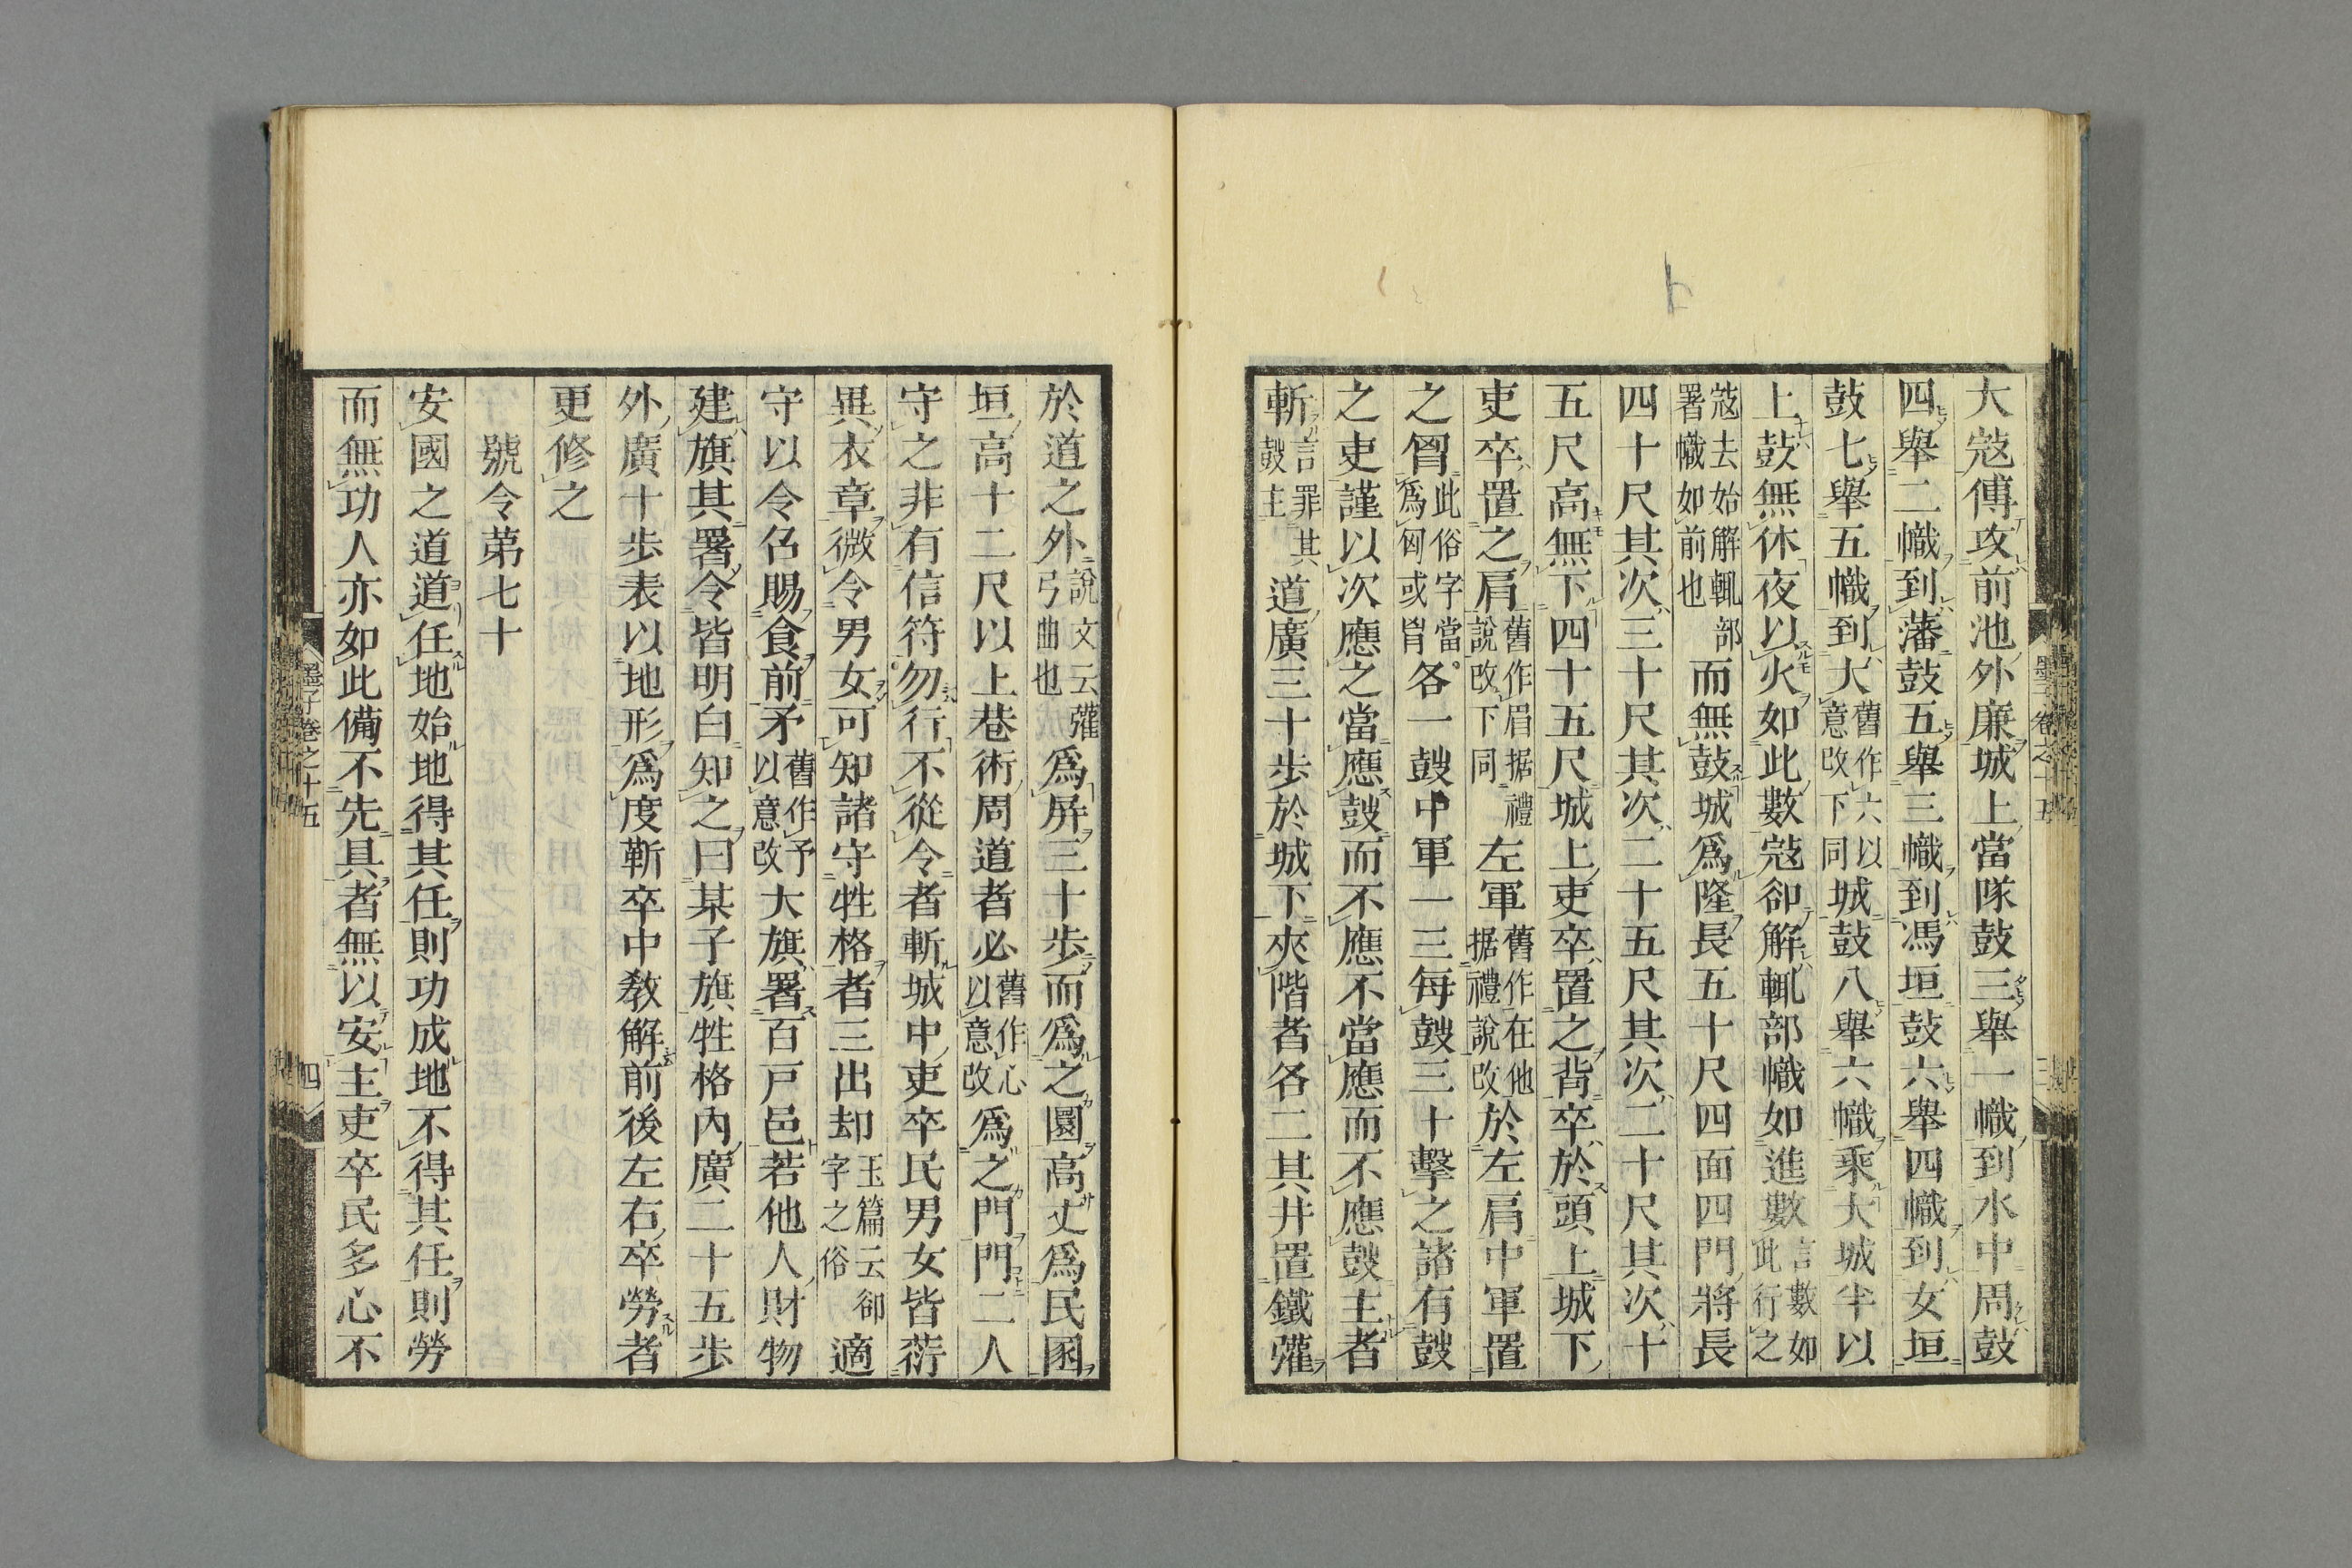 大寇傅攻前池外廉城上當隊鼓三舉一幟到水中周鼓
四舉二幟到藩鼓五舉三幟到馮垣鼓六舉四幟到女垣
鼓七舉五幟到大舊作六以意改下同城鼓八舉六幟乘大城半以
上鼓無休夜以火如此數寇卻解輒部幟如進數言數如此行之
寇去始解輒部署幟如前也而無鼓城爲隆長五十尺四面四門將長
四十尺其次三十尺其次二十五尺其次二十尺其次十
五尺高無下四十五尺城上吏卒置之背卒於頭上城下
吏卒置之肩舊作眉据禮說改下同左軍舊作在他据禮說改於左肩中軍置
之胷此俗字當爲匈或肖各一鼓中軍一三每鼓三十擊之諸有鼓
之吏謹以次應之當應鼓而不應不當應而不應鼓主者
斬言罪其鼓主道廣三十步於城下夾階者各二其井置鐵㼣
墨子卷之十五
三
於道之外說文云㼣弓曲也爲屏三十步而爲之圜高丈爲民圂
垣高十二尺以上巷術周道者必舊作心以意改爲之門門二人
守之非有信符勿行不從令者斬城中吏卒民男女皆葕
異衣章微令男女可知諸守牲格者三出却玉篇云卻字之俗適
守以令召賜食前矛舊作予以意改大旗署百戸邑若他人財物
建旗其署令皆明白知之曰某子旗牲格內廣二十五步
外廣十步表以地形爲度靳卒中敎解前後左右卒勞者
更修之
號令第七十
安國之道道任地始地得其任則功成地不得其任則勞
而無功人亦如此備不先具者無以安主吏卒民多心不
墨子卷之十五
四